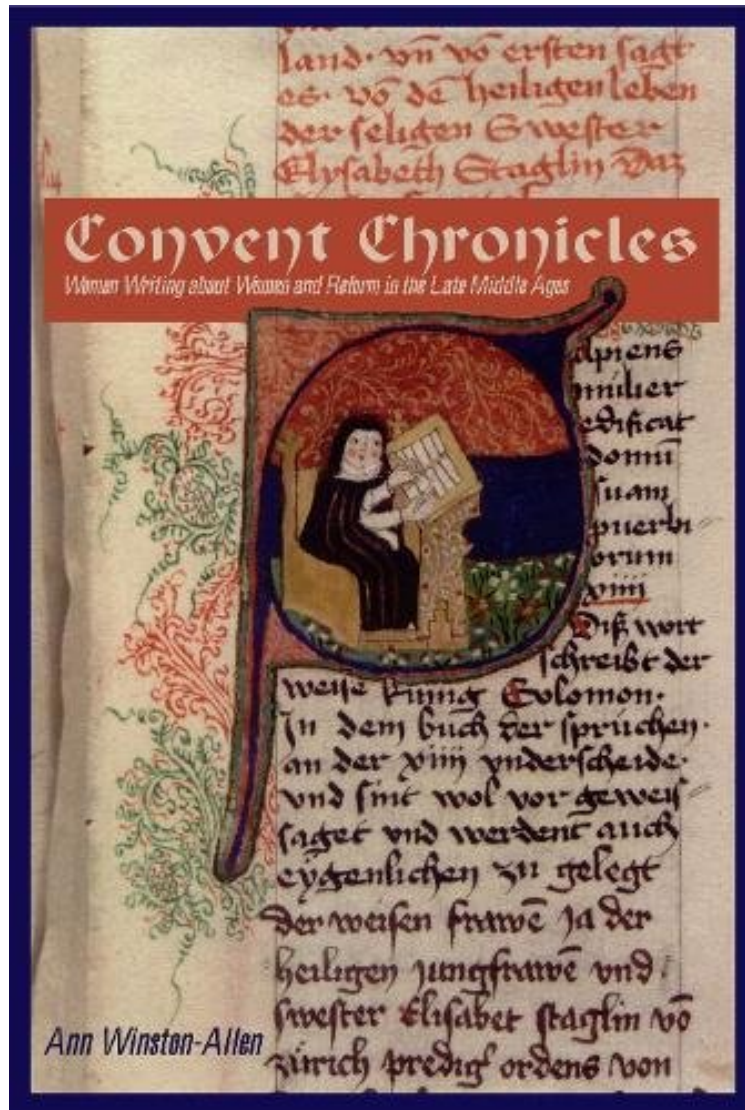 land· vn̄ vō ersten sagt
es· vō dē heiligen leben
der seligen Swester
Elysabeth Staglin Daz
Convent Chronicles
Women Writing about Women and Reform in the Late Middle Ages
apiens
mulier
edificat
domū
suam
puerbi⸗
orum
xiiii
Diß wort
schreibt der
weise kunig Solomon·
In dem buch der spruchen·
an der xiiii vnderscheide·
vnd sint wol vor geweis⸗
saget vnd werdent auch
eygenlichen zu gelegt
der weisen frawē ja der
heiligen jungfrawē vnd
swester Elisabet staglin vō
zürich predig' ordens von
Ann Winston-Allen